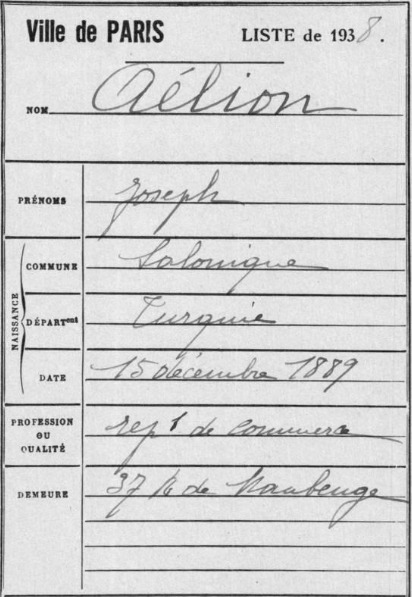 Ville de PARIS LISTE de 1938.
NOM Aélion
PRÉNOMS Joseph
NAISSANCE
COMMUNE Salonique
DÉPARTent Turquie
DATE 15 décembre 1889
PROFESSION OU QUALITÉ rept de commerce
DEMEURE 37 R. de Maubeuge